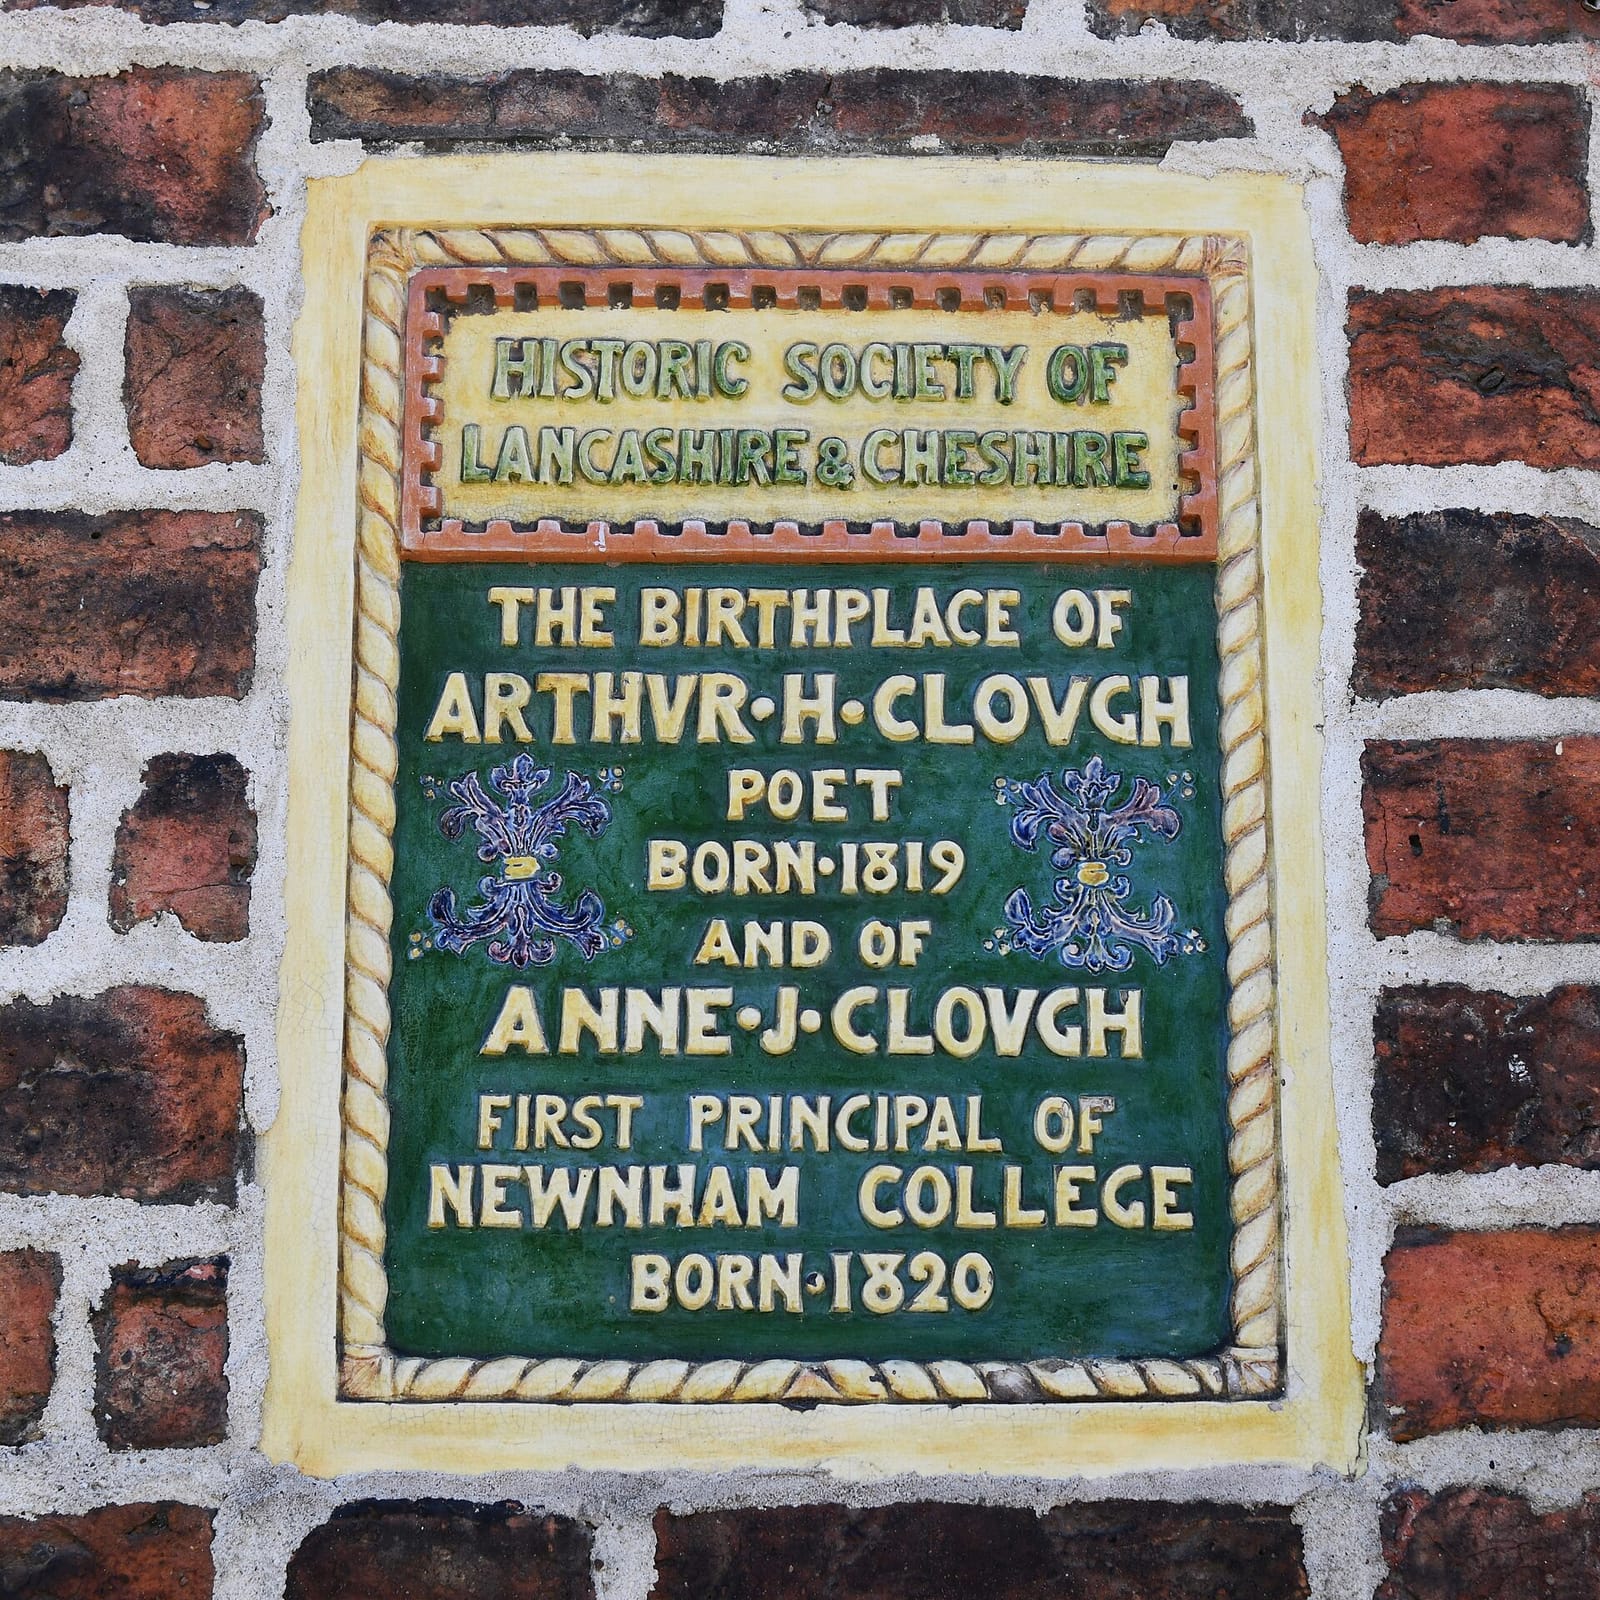 HISTORIC SOCIETY OF
LANCASHIRE & CHESHIRE
THE BIRTHPLACE OF
ARTHVR·H·CLOVGH
POET
BORN·1819
AND OF
ANNE·J·CLOVGH
FIRST PRINCIPAL OF
NEWNHAM COLLEGE
BORN·1820